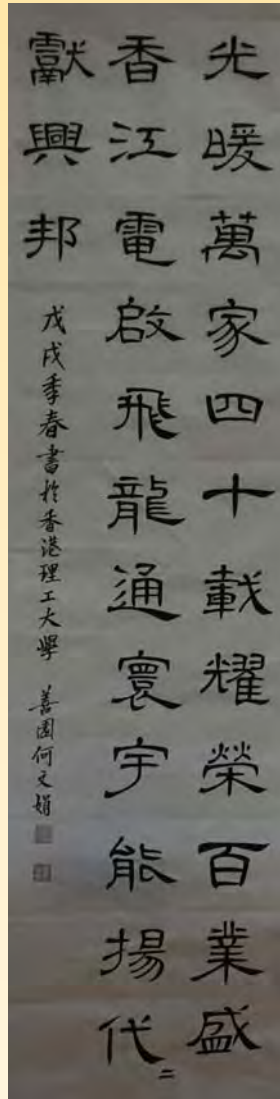 光暖萬家四十載耀榮百業盛
香江電啟飛龍通寰宇能揚代〻
獻興邦
戊戌季春書於香港理工大學 善園何文娟